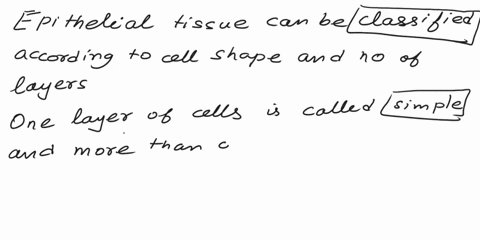 Epithelial tissue can be classified
according to cell shape and no of
layers
One layer of cells is called simple
and more than